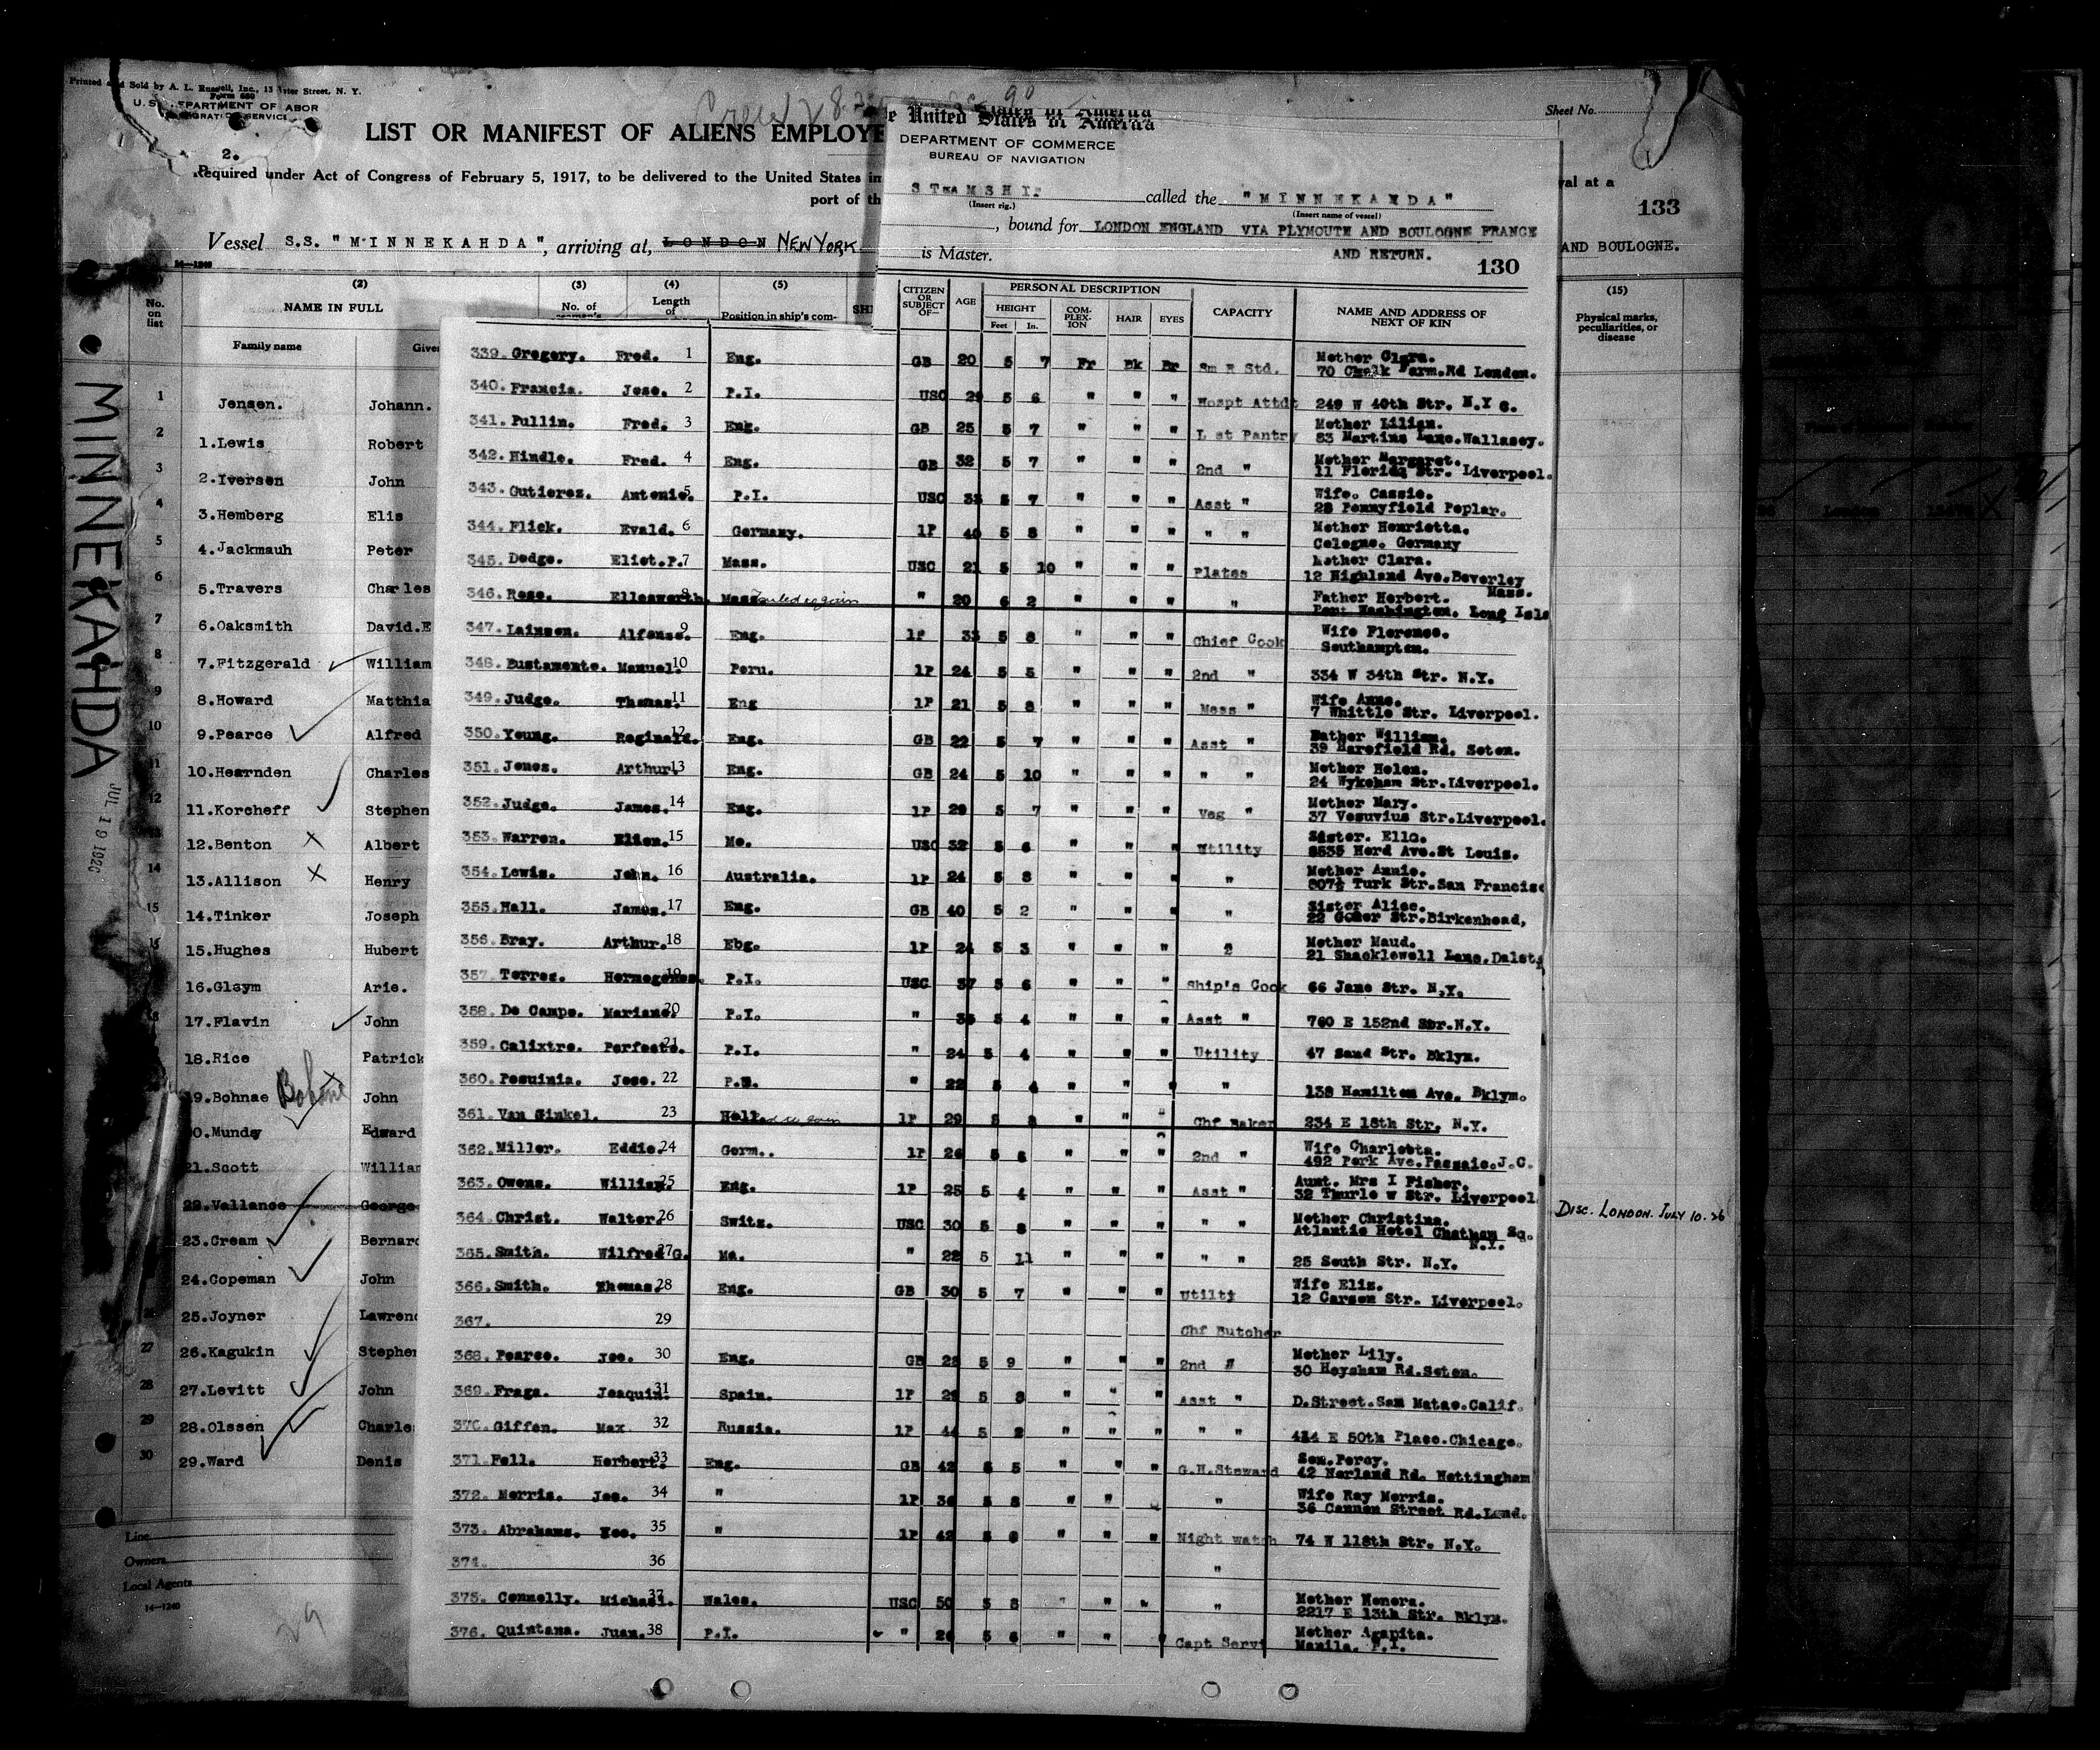 Printed and Sold by A. L. Russell, Inc., 13 Street, N. Y.
Form 680
U.S. DEPARTMENT OF LABOR
IMMIGRATION SERVICE
Sheet No.
LIST OR MANIFEST OF ALIENS EMPLOYE
2.
Required under Act of Congress of February 5, 1917, to be delivered to the United States im
val at a
port of th
133
Vessel S.S. "MINNEKAHDA", arriving at, LONDON NEW YORK
AND BOULOGNE.
14-1240
e United States of America
DEPARTMENT OF COMMERCE
BUREAU OF NAVIGATION
STEAMSHIP called the "MINNEKAHDA"
(Insert rig.) (Insert name of vessel)
, bound for LONDON ENGLAND VIA PLYMOUTH AND BOULOGNE FRANCE
is Master. AND RETURN. 130
(2) (3) (4) (5) (15)
No. on list
NAME IN FULL
No. of
Length of
Position in ship's com-
SHI
Physical marks, peculiarities, or disease
Family name Give
MINNEKAHDA
JUL 19 192
1 Jensen. Johann.
2 1.Lewis Robert
3 2.Iversen John
4 3.Hemberg Elis
5 4.Jackmauh Peter
6 5.Travers Charles
7 6.Oaksmith David.E
8 7.Fitzgerald William
9 8.Howard Matthia
10 9.Pearce Alfred
11 10.Hearnden Charles
12 11.Korcheff Stephen
13 12.Benton Albert
14 13.Allison Henry
15 14.Tinker Joseph
15.Hughes Hubert
16.Glaym Arie.
17.Flavin John
18.Rice Patrick
19.Bohnae Bohne John
20.Mundy Edward
21.Scott William
22.Vallance George
Disc. London. July 10.26
23.Cream Bernard
24.Copeman John
25.Joyner Lawrenc
27 26.Kagukin Stephen
28 27.Levitt John
29 28.Olssen Charles
30 29.Ward Denis
Line
Owners
Local Agents
14-1240
29
CITIZEN OR SUBJECT OF— AGE PERSONAL DESCRIPTION CAPACITY NAME AND ADDRESS OF NEXT OF KIN
HEIGHT COM-PLEX-ION HAIR EYES
Feet In.
339. Gregory. Fred. 1 Eng. GB 20 5 7 Fr Bk Br Sm R Std. Mother Clara.
70 Chalk Farm.Rd London.
340. Francia. Jose. 2 P.I. USC 29 5 6 " " " Hospt Attdt 249 W 40th Str. N.Y C.
341. Pullin. Fred. 3 Eng. GB 25 5 7 " " " 1 st Pantry Mother Lilian.
83 Martins Lane.Wallasey.
342. Hindle. Fred. 4 Eng. GB 32 5 7 " " " 2nd " Mother Margaret.
11 Florida Str. Liverpool.
343. Gutierez. Antonio. 5 P.I. USC 33 5 7 " " " Asst " Wife. Cassie.
28 Pennyfield Poplar.
344. Flick. Evald. 6 Germany. 1P 40 5 8 " " " " " Mother Henrietta.
Cologne. Germany
345. Dodge. Eliot.P. 7 Mass. USC 21 5 10 " " " Plates Mother Clara.
12 Highland Ave.Beverley
Mass.
346. Rose. Ellesworth. 8 Mass. " 20 6 2 " " " " Father Herbert.
Port Washington. Long Isla
347. Lainson. Alfonso. 9 Eng. 1P 33 5 8 " " " Chief Cook Wife Florence.
Southampton.
348. Bustamente. Manuel. 10 Peru. 1P 24 5 5 " " " 2nd " 334 W 34th Str. N.Y.
349. Judge. Thomas. 11 Eng 1P 21 5 8 " " " Mess " Wife Anne.
7 Whittle Str. Liverpool.
350. Young. Reginald. 12 Eng. GB 22 5 7 " " " Asst " Father William.
39 Harefield Rd. Seton.
351. Jones. Arthur. 13 Eng. GB 24 5 10 " " " " " Mother Helen.
24 Wykeham Str.Liverpool.
352. Judge. James. 14 Eng. 1P 29 5 7 " " " Veg " Mother Mary.
37 Vesuvius Str.Liverpool.
353. Warren. 15 Mo. USC 32 5 6 " " " Utility Sister. Ella.
Hord Ave.St Louis.
354. Lewis. John. 16 Australia. 1P 24 5 8 " " " " Mother Annie.
807½ Turk Str.San Francisc
355. Hall. James. 17 Eng. GB 40 5 2 " " " " Sister Alice.
22 Str.Birkenhead,
356. Bray. Arthur. 18 Ebg. 1P 24 5 3 " " " 2 Mother Maud.
21 Shacklewell Lane.Dalst
357. Torres. Hermogenes. 19 P.I. USC 37 5 6 " " " Ship's Cook 66 Jane Str. N.Y.
358. De Campo. Mariano. 20 P.I. " 35 5 4 " " " Asst " 760 E 152nd Str.N.Y.
359. Calixtro. Perfecto. 21 P.I. " 24 5 4 " " " Utility 47 Sand Str. Bklyn.
360. Pesuinia. Jose. 22 " 22 5 4 " " " " 138 Hamilton Ave. Bklyn.
361. Van Ginkel. 23 Holl. 1P 29 5 8 " " " Chf Baker 234 E 18th Str. N.Y.
362. Miller. Eddie. 24 Germ.. 1P 26 5 6 " " " 2nd " Wife Charlotta.
492 Park Ave.Passaic.J.C.
363. Owens. William. 25 Eng. 1P 25 5 4 " " " Asst " Aunt. Mrs I Fisher.
32 Thurlo w Str. Liverpool
364. Christ. Walter. 26 Switz. USC 30 5 8 " " " " " Mother Christina.
Atlantic Hotel Chatham Sq.
N.Y.
365. Smith. Wilfred G. 27 Ma. " 22 5 11 " " " " " 25 South Str. N.Y.
366. Smith. Thomas. 28 Eng. GB 30 5 7 " " " Utilty Wife Eliz.
12 Carson Str. Liverpool.
367. 29 Chf Butcher
368. Pearce. Joe. 30 Eng. GB 22 5 9 " " " 2nd " Mother Lily.
30 Heysham Rd.Seton.
369. Fraga. Joaquin. 31 Spain. 1P 29 5 8 " " " Asst " D.Street.San Matao.Calif.
370. Giffen. Max 32 Russia. 1P 44 5 2 " " " " " 414 E 50th Place.Chicago.
371. Fell. Herbert. 33 Eng. GB 42 5 5 " " " G.H.Steward Son.Percy.
42 Norland Rd. Nottingham
372. Morris. Joe. 34 " 1P 36 5 8 " " " " Wife Ray Morris.
36 Cannon Street Rd.Lond.
373. Abrahams. 35 " 1P 42 5 6 " " " Night watch 74 W 118th Str. N.Y.
374. 36 "
375. Connolly. Michael. 37 Wales. USC 50 5 8 " " " " Mother Honora.
2217 E 13th Str. Bklyn.
376. Quintana. Juan. 38 P.I. " 26 5 6 " " " Capt Servt Mother Agapita.
Manila. P.I.